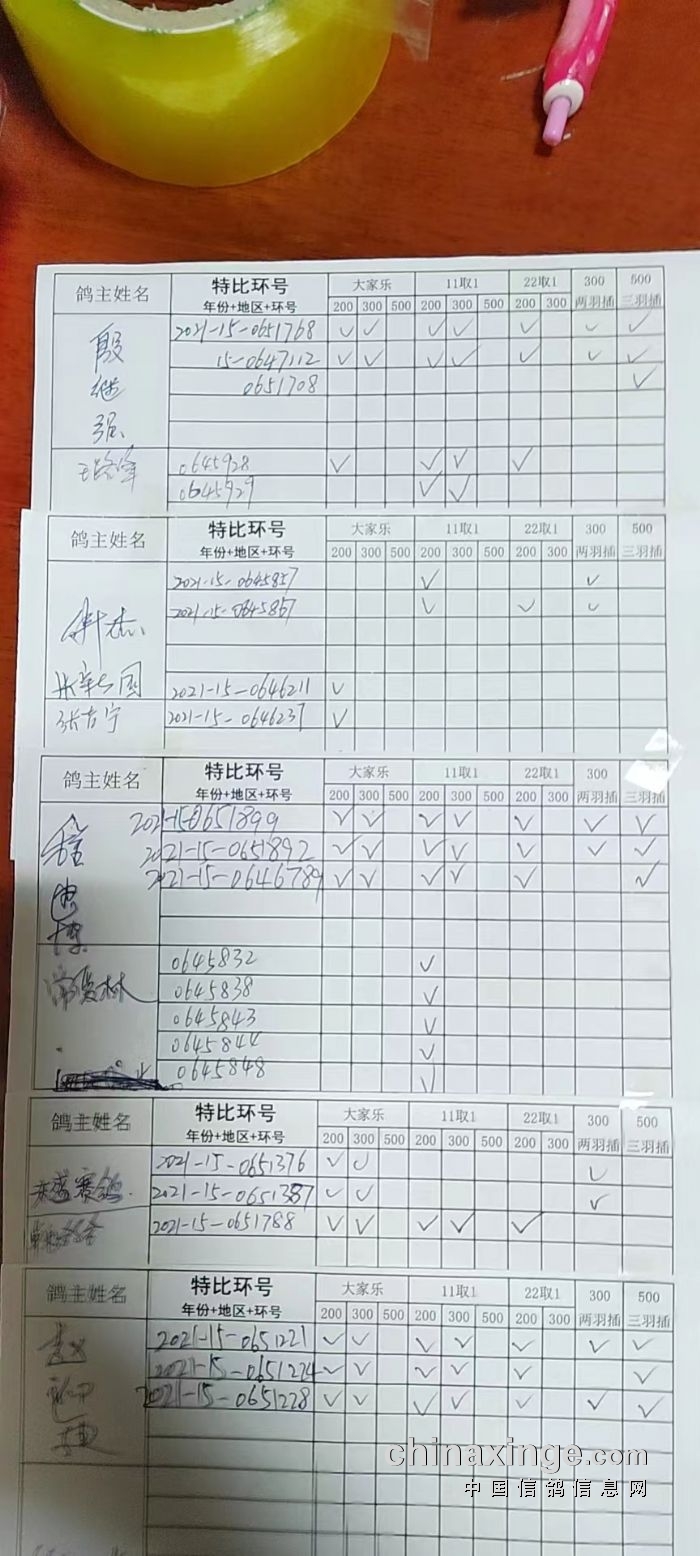 鸽主姓名 特比环号 大家乐 11取1 22取1 300 500
年份+地区+环号 200 300 500 200 300 500 200 300 两羽插 三羽插
殷继强 2021-15-0651768 ✓ ✓ ✓ ✓ ✓ ✓ ✓
15-0647112 ✓ ✓ ✓ ✓ ✓ ✓ ✓
0651708 ✓
0645928 ✓ ✓ ✓ ✓
0645929 ✓ ✓
鸽主姓名 特比环号 大家乐 11取1 22取1 300 500
年份+地区+环号 200 300 500 200 300 500 200 300 两羽插 三羽插
2021-15-0645857 ✓ ✓
2021-15-0645867 ✓ ✓ ✓
2021-15-0646211 ✓
张吉宁 2021-15-0646237 ✓
鸽主姓名 特比环号 大家乐 11取1 22取1 300 500
年份+地区+环号 200 300 500 200 300 500 200 300 两羽插 三羽插
2021-15-0651899 ✓ ✓ ✓ ✓ ✓ ✓ ✓
2021-15-0651892 ✓ ✓ ✓ ✓ ✓ ✓ ✓
2021-15-0646789 ✓ ✓ ✓ ✓ ✓ ✓
0645832 ✓
0645838 ✓
0645843 ✓
0645844 ✓
0645848 ✓
鸽主姓名 特比环号 大家乐 11取1 22取1 300 500
年份+地区+环号 200 300 500 200 300 500 200 300 两羽插 三羽插
2021-15-0651376 ✓ ✓ ✓
2021-15-0651387 ✓ ✓ ✓
2021-15-0651788 ✓ ✓ ✓ ✓ ✓
鸽主姓名 特比环号 大家乐 11取1 22取1 300 500
年份+地区+环号 200 300 500 200 300 500 200 300 两羽插 三羽插
2021-15-0651221 ✓ ✓ ✓ ✓ ✓ ✓ ✓
2021-15-0651224 ✓ ✓ ✓ ✓ ✓ ✓
2021-15-0651228 ✓ ✓ ✓ ✓ ✓ ✓ ✓
chinaxinge.com
中国信鸽信息网